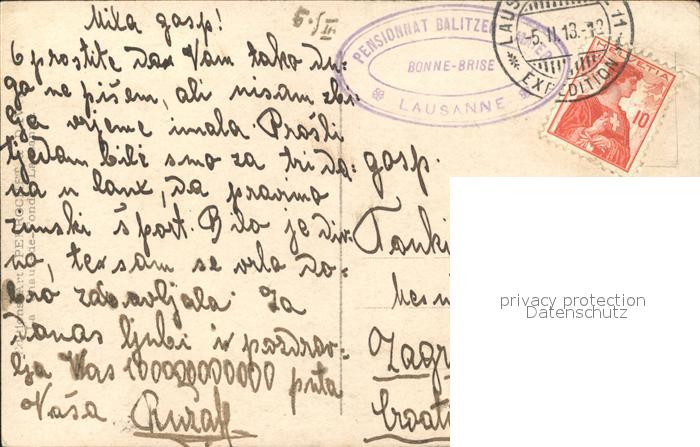 Mila gosp!
5./II
O prostite da Vam tako du-
go ne pišem, ali nisam zbi-
lja vrijeme imala. Prošli
tjedan bile smo za tri da-
na u lanx, da pravimo
zimski šport. Bilo je div-
no, te sam se vrlo do-
bro zabavljala. Za
danas ljubi i pozdrav-
lja Vas 100000000000 puta
Vaša Ruža
PENSIONNAT BALITZER
BONNE-BRISE
LAUSANNE
-5.II.13.-12
EXPEDITION
HELVETIA
10
gosp.
Tonki
Zagr
Croati
privacy protection
Datenschutz